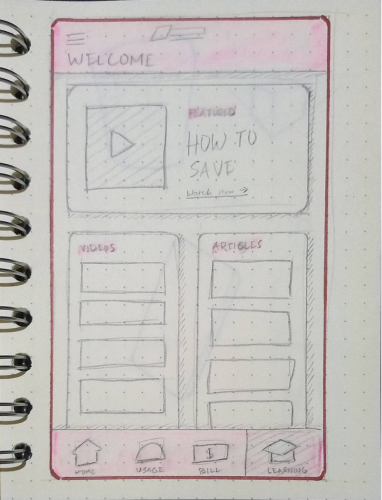 WELCOME
FEATURED
HOW TO
SAVE
Watch now →
VIDEOS
ARTICLES
HOME
USAGE
$
BILL
LEARNING